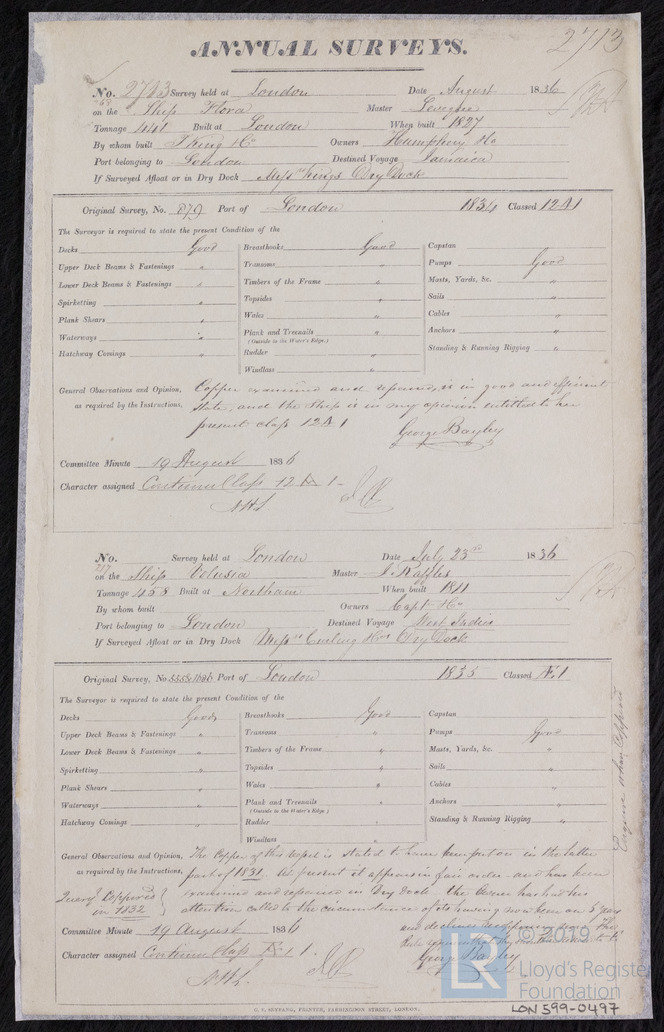 2713
ANNUAL SURVEYS.
No. 2713 Survey held at London Date August 1836
on the Ship Flora Master
Tonnage 441 Built at London When built 1827
By whom built J King & Co Owners Humphery & Co
Port belonging to London Destined Voyage Jamaica
If Surveyed Afloat or in Dry Dock Messrs Kings Dry Dock
Original Survey, No. 879 Port of London 1834 Classed 12 A1
The Surveyor is required to state the present Condition of the
Decks Good Breasthooks Good Capstan
Upper Deck Beams & Fastenings " Transoms " Pumps Good
Lower Deck Beams & Fastenings " Timbers of the Frame " Masts, Yards, &c. "
Spirketting " Topsides " Sails "
Plank Shears " Wales " Cables "
Waterways " Plank and Treenails " Anchors "
(Outside to the Water's Edge.)
Hatchway Comings " Rudder " Standing & Running Rigging "
Windlass "
General Observations and Opinion, Copper examined and repaired, is in good and efficient
as required by the Instructions. state, and the Ship is in my opinion entitled to her
present class 12 A 1
George Bayley
Committee Minute 19 August 1836
Character assigned Continue Class 12 A 1 -
No. Survey held at London Date July 23rd 1836
on the Ship Velusia Master J. Raffles
Tonnage 458 Built at Northam When built 1811
By whom built Owners Capt & Co
Port belonging to London Destined Voyage West Indies
If Surveyed Afloat or in Dry Dock Messrs Curling & Co Dry Dock
Original Survey, No. Port of London 1835 Classed Æ 1
The Surveyor is required to state the present Condition of the
Decks Good Breasthooks Good Capstan
Upper Deck Beams & Fastenings " Transoms " Pumps Good
Lower Deck Beams & Fastenings " Timbers of the Frame " Masts, Yards, &c. "
Spirketting " Topsides " Sails "
Plank Shears " Wales " Cables "
Waterways " Plank and Treenails " Anchors "
(Outside to the Water's Edge.)
Hatchway Comings " Rudder " Standing & Running Rigging "
Windlass "
General Observations and Opinion, The Copper of this vessel is stated to have been put on in the latter
as required by the Instructions. part of 1831. At present it appears in fair order and has been
examined and repaired in Dry Dock. The Owner has had his
attention called to the circumstance of its having now been on 5 years
and declines
Coppered
in 1832
Committee Minute 19 August 1836
Character assigned Continue Class Æ 1
George Bayley
© 2019
LR
Lloyd's Register
Foundation
C. F. SEYFANG, PRINTER, FARRINGDON STREET, LONDON.
LON 599-0497